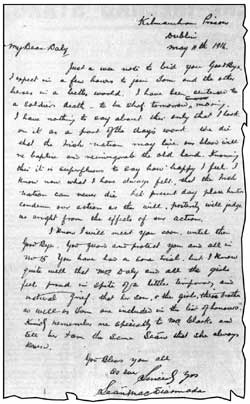 Kilmainham Prison
Dublin
May 11th 1916.
My Dear Daly
Just a wee note to bid you Good Bye.
I expect in a few hours to join Tom and the other
heroes in a better world. I have been sentenced to
a soldiers death – to be shot tomorrow morning.
I have nothing to say about this only that I look
on it as a part of the days work. We die
that the Irish nation may live. Our blood will
re baptise and reinvigorate the old land. Knowing
this it is superfluous to say how happy I feel. I
know now what I have always felt, that the Irish
nation can never die. Let present day place hunters
condemn our action as they will, posterity will judge
us aright from the effects of our action.
I know I will meet you soon, until then
Good Bye. God guard and protect you and all in
No 15. You have had a sore trial, but I know
quite well that Mrs Daly and all the girls
feel proud in spite of a little temporary and
natural grief that her son & the girls, their brother
as well as Tom are included in the list of honours.
Kindly remember me specially to Mrs Clarke and
tell her I am the same Sean that she always
knew.
God Bless you all
As ever
Sincerely Yours
Seán mac Diarmada